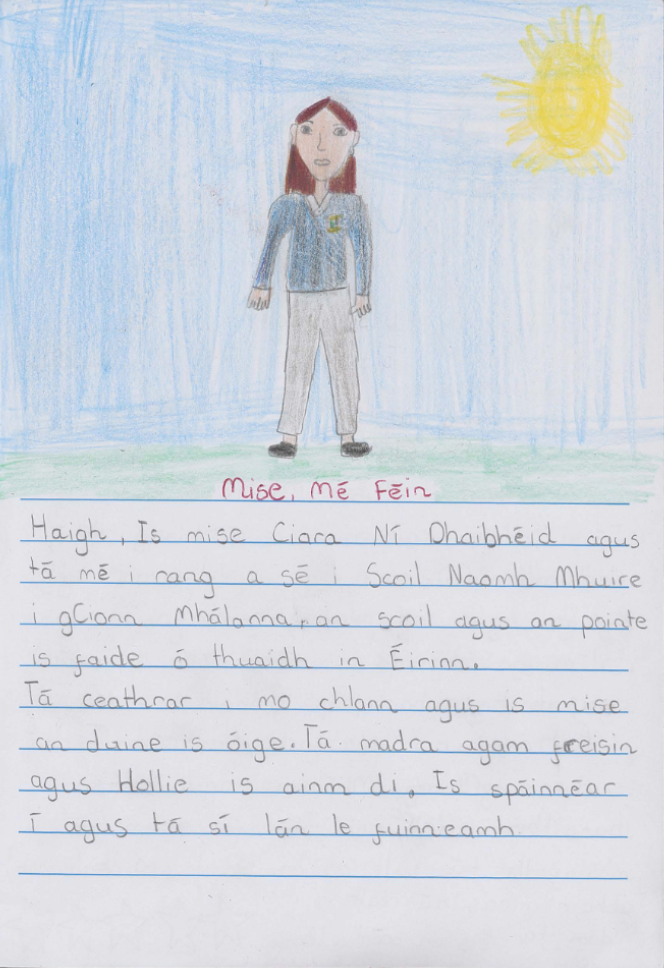 Mise, Mé Féin
Haigh, Is mise Ciara Ní Dhaibhéid agus
tá mé i rang a sé i Scoil Naomh Mhuire
i gCionn Mhálanna, an scoil agus an pointe
is faide ó thuaidh in Éirinn.
Tá ceathrar i mo chlann agus is mise
an duine is óige. Tá madra agam freisin
agus Hollie is ainm di. Is spáinnéar
í agus tá sí lán le fuinneamh